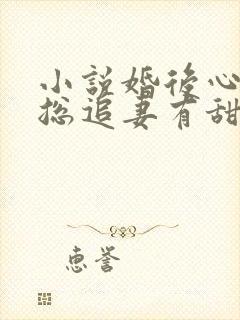 小説婚後心
總追妻有甜
惠誉